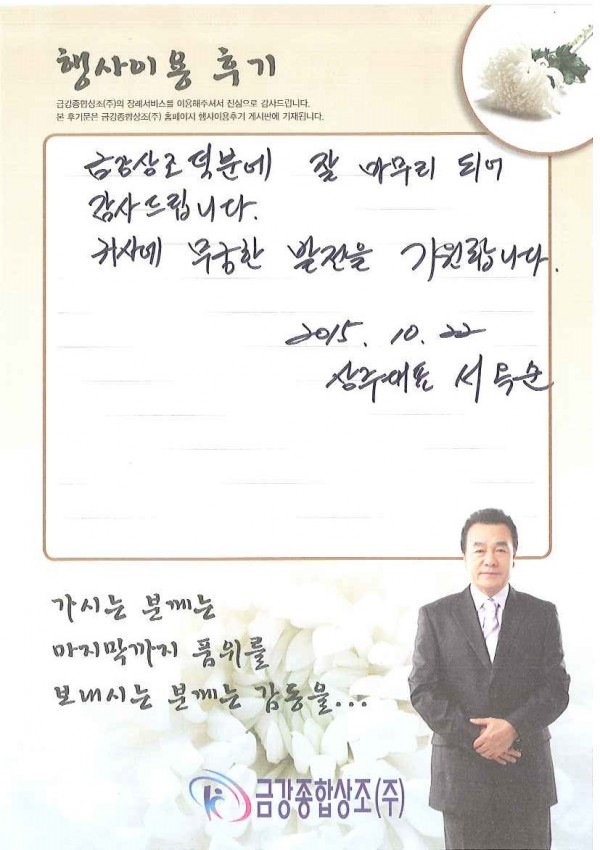 행사이용 후기
금강종합상조(주)의 장례서비스를 이용해주셔서 진심으로 감사드립니다.
본 후기문은 금강종합상조(주) 홈페이지 행사이용후기 게시판에 기재됩니다.
금강상조 덕분에 잘 마무리 되어
감사드립니다.
귀사에 무궁한 발전을 기원합니다.
2015. 10. 22
상주대표 서옥순
가시는 분께는
마지막까지 품위를
보내시는 분께는 감동을...
금강종합상조(주)